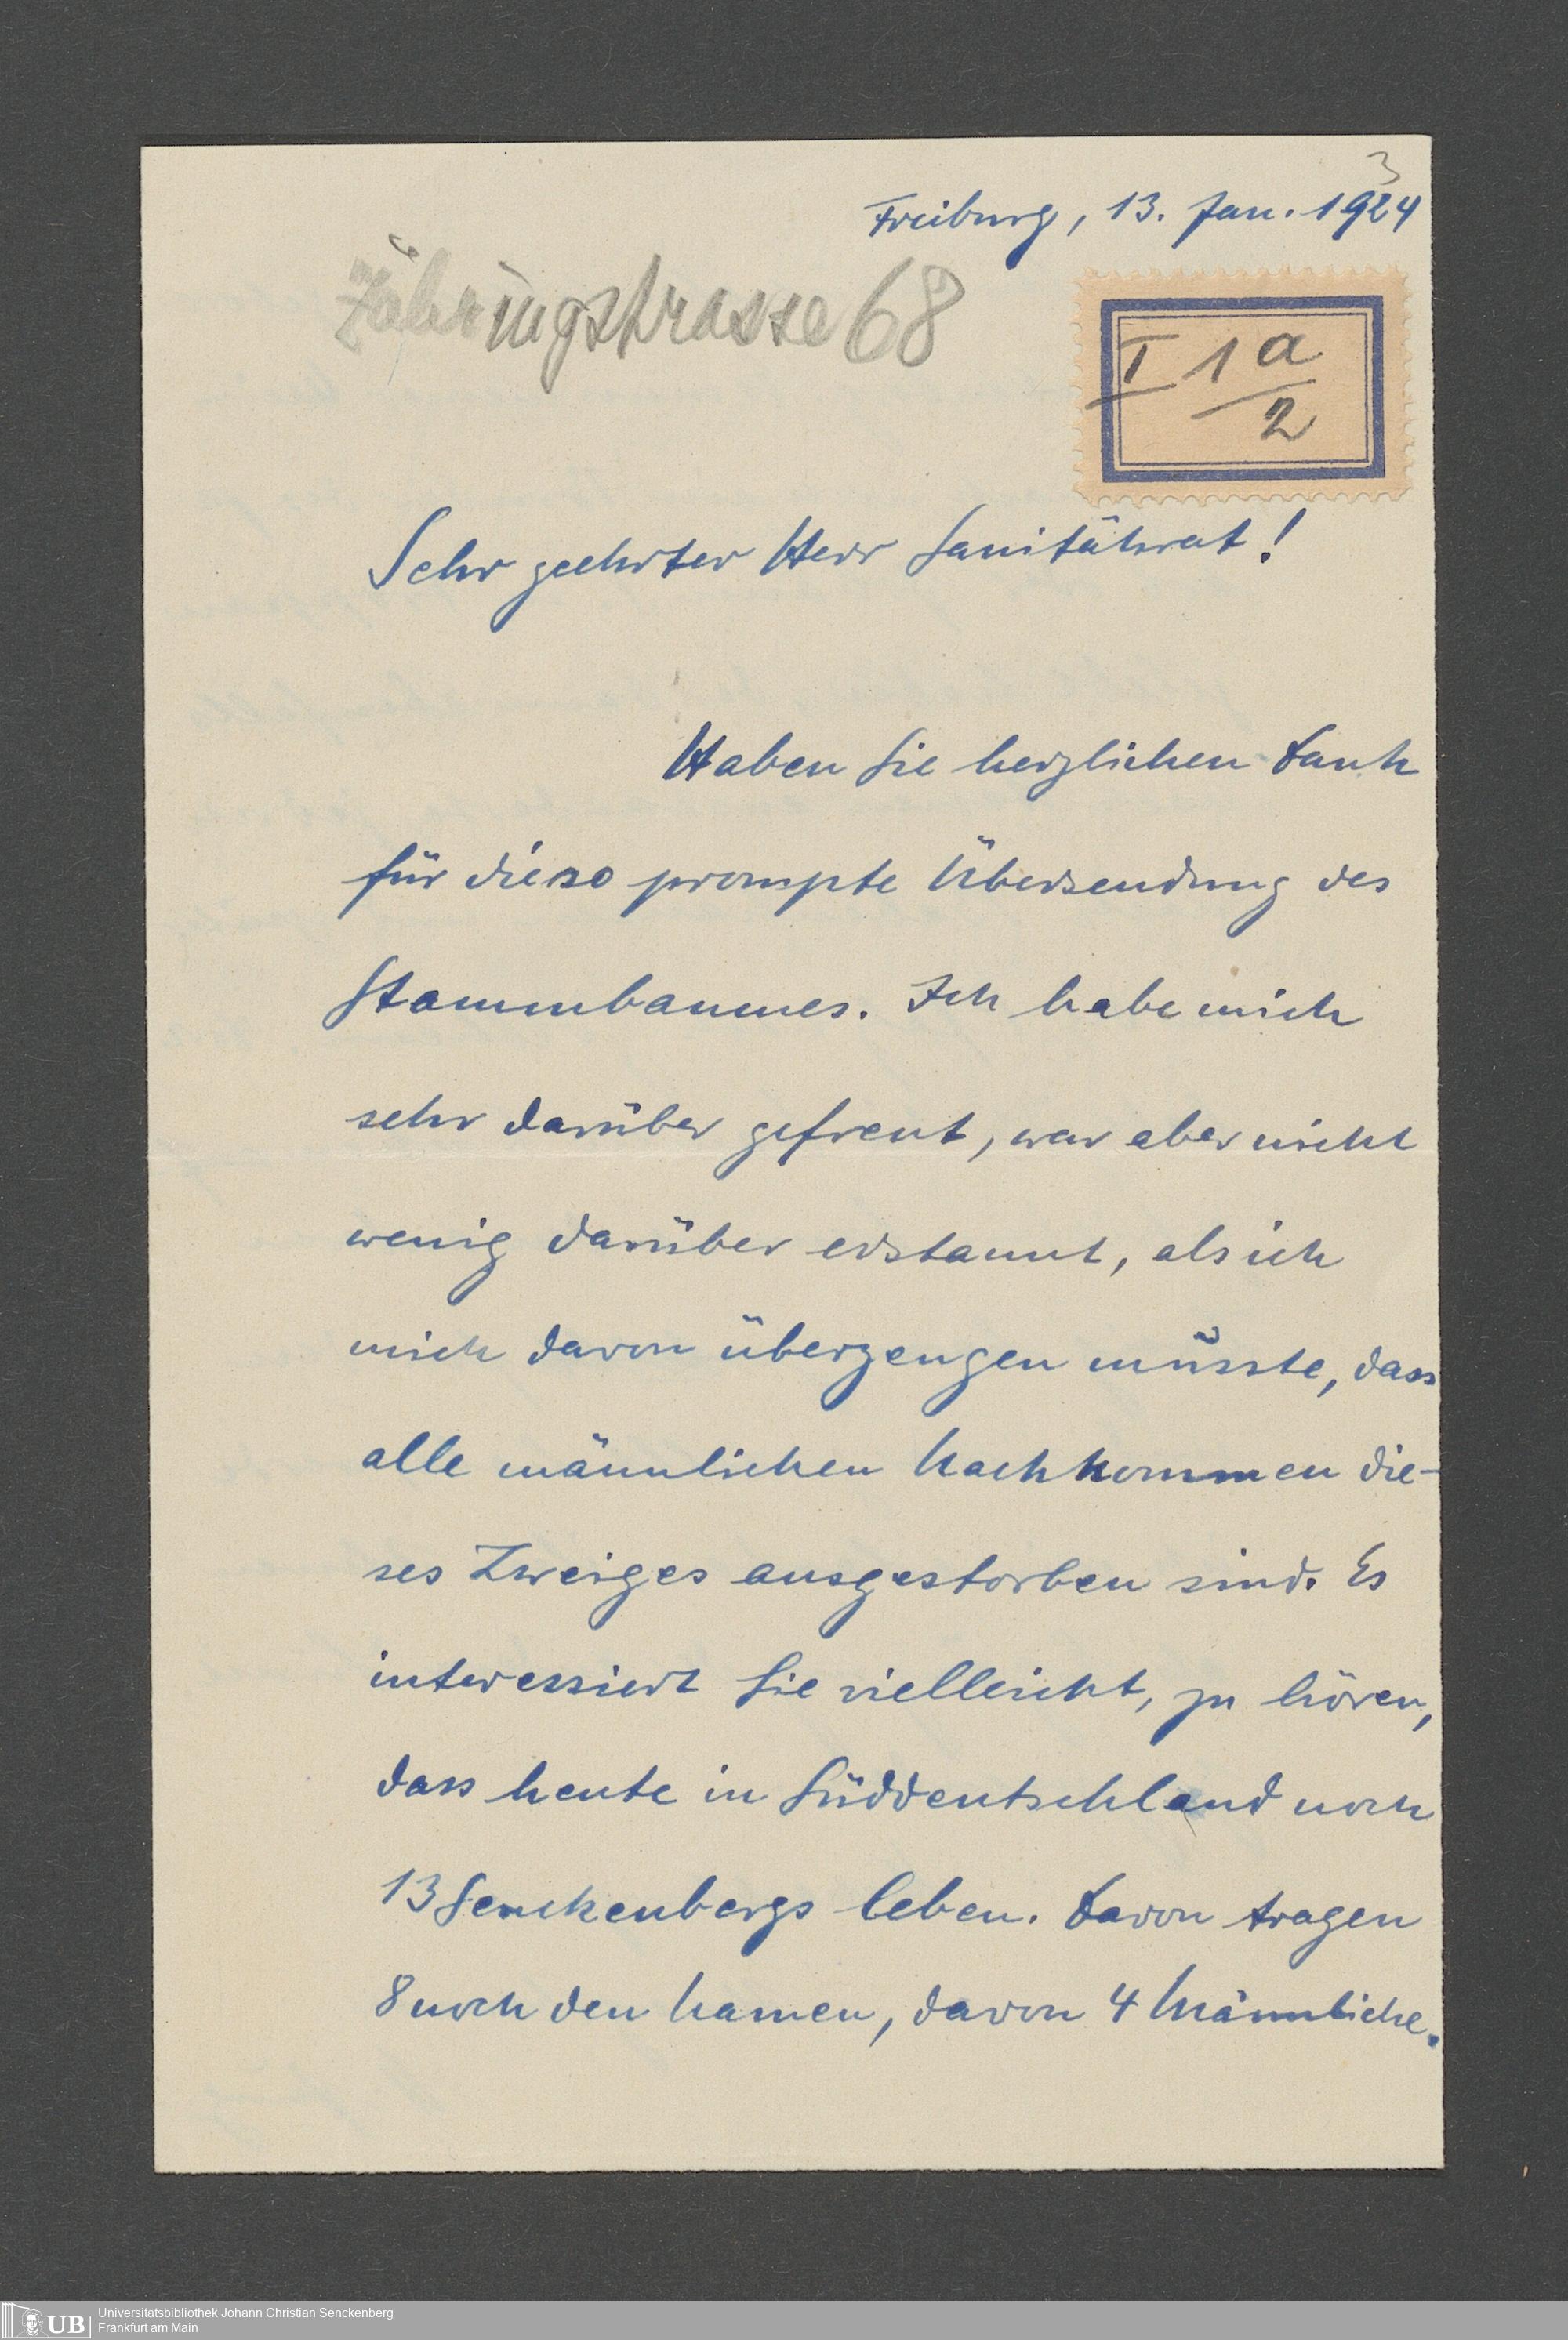 3
Freiburg, 13. Jan. 1924
Zähringstrasse 68
I 1 a
2
Sehr geehrter Herr Sanitätsrat!
Haben Sie herzlichen Dank
für diese prompte Übersendung des
Stammbaumes. Ich habe mich
sehr darüber gefreut, war aber nicht
wenig darüber erstaunt, als ich
mich davon überzeugen müsste, dass
alle männlichen Nachkommen die-
ses Zweiges ausgestorben sind. Es
interessiert Sie vielleicht, zu hören,
dass heute in Süddeutschland noch
13 Senckenbergs leben. Davon tragen
8 noch den Namen, davon 4 Männliche.
UB
Universitätsbibliothek Johann Christian Senckenberg
Frankfurt am Main